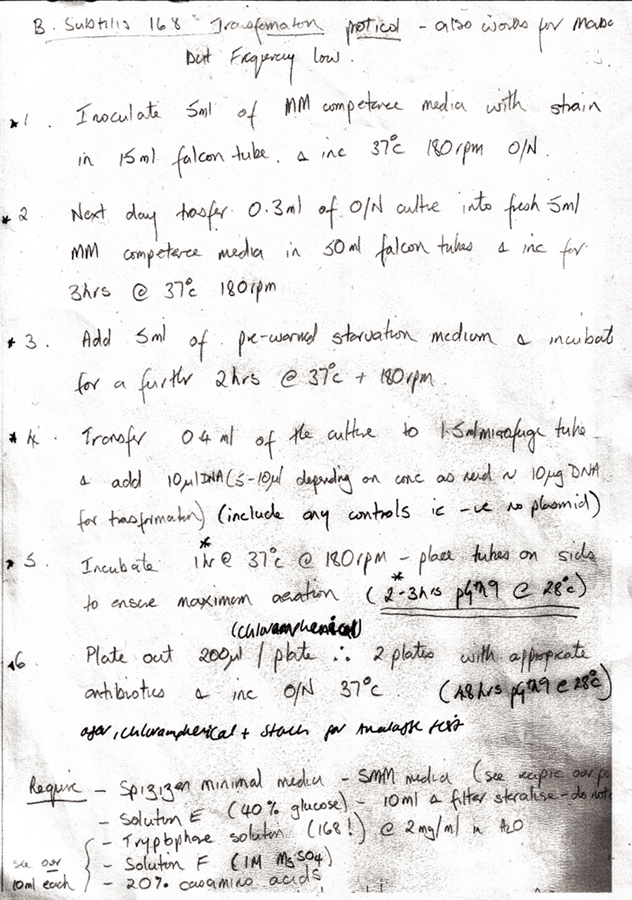 B. Subtilis 168 Transformaton protocol - also works for
But Frequency low.
*1. Inoculate 5ml of MM competence media with strain
in 15ml falcon tube. & inc 37°c 180rpm O/N.
*2. Next day trasfer 0.3ml of O/N cultre into fresh 5ml
MM competence media in 50ml falcon tubes & inc for
3hrs @ 37°c 180rpm
*3. Add 5ml of pre-warmed starvation medium & incubat
for a further 2hrs @ 37°c + 180rpm.
*4. Transfer 0.4ml of the culture to 1.5ml microfuge tube
& add 10µl DNA (5-10µl depending on conc as need ~ 10µg DNA
for trasformaton) (include any controls ie -ve no plasmid)
*5. Incubate 1hr* @ 37°c @ 180rpm - place tubes on side
to ensure maximum aeration (2*-3hrs @ 28°c)
(chloramphenicol)
*6. Plate out 200µl / plate ∴ 2 plates with appropriate
antibiotics & inc O/N 37°c. (48hrs @ 28°c)
agar, chloramphenicol + starch for Amalayse test
Require - Spizizen minimal media - SMM media (see recipie
- Soluton E (40% glucose) - 10ml & filter steralise - do not
- Tryptophane soluton (168!) @ 2mg/ml in H2O
- Soluton F (1M MgSO4)
- 20% casamino acids
see
10ml each